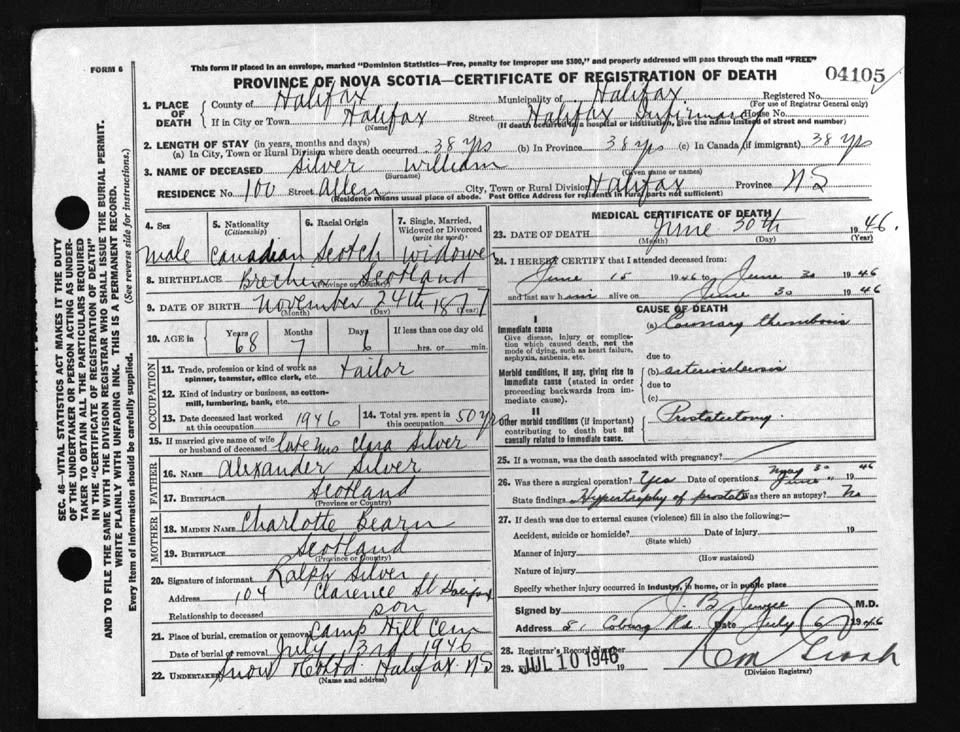 FORM 6
This form if placed in an envelope, marked "Dominion Statistics—Free, penalty for improper use $300," and properly addressed will pass through the mail "FREE"
PROVINCE OF NOVA SCOTIA—CERTIFICATE OF REGISTRATION OF DEATH
04105
1. PLACE OF DEATH
County of Halifax Municipality of Halifax Registered No.
(For use of Registrar General only)
If in City or Town Halifax Street Halifax Infirmary House No.
(Name) (If death occurred in a hospital or institution, give the name instead of street and number)
2. LENGTH OF STAY (in years, months and days)
(a) In City, Town or Rural Division where death occurred 38 yrs (b) In Province 38 yrs (c) In Canada (if immigrant) 38 yrs
3. NAME OF DECEASED Silver William
(Surname) (Given name or names)
RESIDENCE No. 100 Street Allen City, Town or Rural Division Halifax Province NS
(Residence means usual place of abode. Post Office Address for residents in rural parts not sufficient)
4. Sex
5. Nationality (Citizenship)
6. Racial Origin
7. Single, Married, Widowed or Divorced (write the word)
male Canadian Scotch Widowe
8. BIRTHPLACE Brechin Scotland
(Province or Country)
9. DATE OF BIRTH November 24th 1877
(Month) (Day) (Year)
10. AGE in Years Months Days If less than one day old
68 7 6 hrs. or min.
OCCUPATION
11. Trade, profession or kind of work as spinner, teamster, office clerk, etc. tailor
12. Kind of industry or business, as cotton-mill, lumbering, bank, etc.
13. Date deceased last worked at this occupation 1946
14. Total yrs. spent in this occupation 50 yrs
15. If married give name of wife or husband of deceased late Mrs Clara Silver
FATHER
16. NAME Alexander Silver
17. BIRTHPLACE Scotland
(Province or Country)
MOTHER
18. MAIDEN NAME Charlotte Bearn
19. BIRTHPLACE Scotland
(Province or Country)
20. Signature of informant Ralph Silver
Address 104 Clarence St Halifax
Relationship to deceased son
21. Place of burial, cremation or removal Camp Hill Cem
Date of burial or removal July 3rd 1946
22. UNDERTAKER Snow & Co Ltd Halifax NS
(Name and address)
MEDICAL CERTIFICATE OF DEATH
23. DATE OF DEATH June 30th 1946.
(Month) (Day) (Year)
24. I HEREBY CERTIFY that I attended deceased from:
June 15 1946 to June 30 1946
and last saw him alive on June 30 1946
CAUSE OF DEATH
I
Immediate cause (a) Coronary thrombosis
Give disease, injury or complication which caused death, not the mode of dying, such as heart failure, asphyxia, asthenia, etc.
due to
Morbid conditions, if any, giving rise to immediate cause (stated in order proceeding backwards from immediate cause).
(b) arteriosclerosis
due to
(c)
II
Other morbid conditions (if important) contributing to death but not causally related to immediate cause.
Prostatectomy.
25. If a woman, was the death associated with pregnancy?
26. Was there surgical operation? Yes Date of operation May 30 June " 1946
State findings Hypertrophy of prostate Was there an autopsy? No
27. If death was due to external causes (violence) fill in also the following:-
Accident, suicide or homicide? Date of injury 19
(State which)
Manner of injury
(How sustained)
Nature of injury
Specify whether injury occurred in industry, in home, or in public place
Signed by J. B. M.D.
Address 81 Coburg Rd. Date July 6 1946
28. Registrar's Record Number
29. Filed JUL 10 1946 19
(Division Registrar)
SEC. 46—VITAL STATISTICS ACT MAKES IT THE DUTY
OF THE UNDERTAKER OR PERSON ACTING AS UNDER-
TAKER TO OBTAIN ALL THE PARTICULARS REQUIRED
IN THE "CERTIFICATE OF REGISTRATION OF DEATH"
AND TO FILE THE SAME WITH THE DIVISION REGISTRAR WHO SHALL ISSUE THE BURIAL PERMIT.
WRITE PLAINLY WITH UNFADING INK. THIS IS A PERMANENT RECORD.
Every item of information should be carefully supplied. (See reverse side for instructions.)